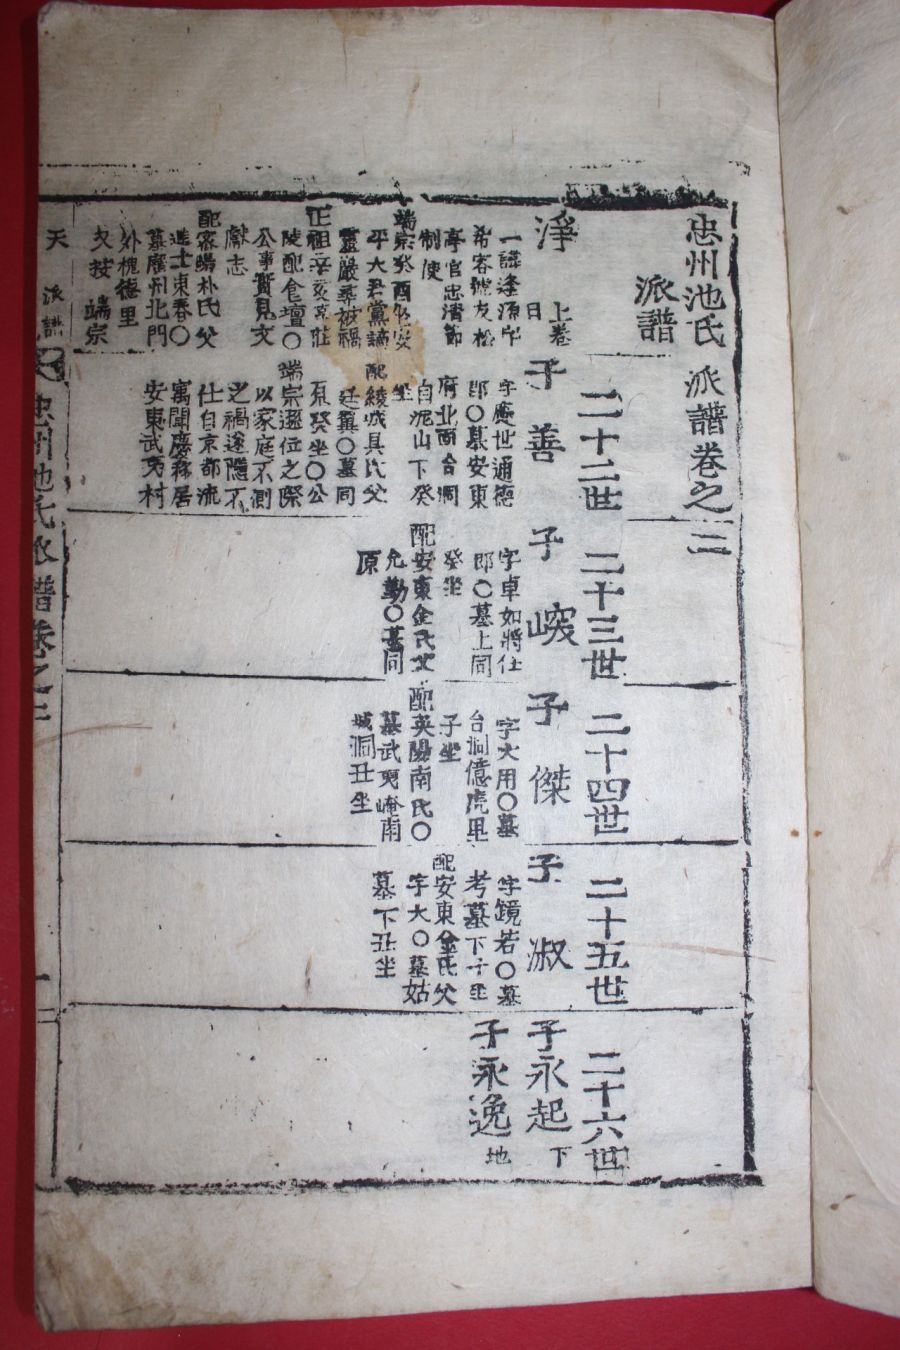 忠州池氏派譜卷之三
派譜
淨
上卷
日
一諱逢源字
希容號友松
亭官忠淸節
制使
端宗癸酉以安
平大君黨謫
靈巖辜被禍
正祖辛亥莊
陵配食壇〇
公事實見文
獻志
配密陽朴氏父
進士東春〇
墓廣州北門
外槐德里
攵按端宗
二十二世
子善
字應世通德
郞〇墓安東
府北面台洞
自泥山下癸
坐
配綾城具氏父
廷翼〇墓同
原癸坐〇公
端宗遜位之際
以家庭不測
之禍遂隱不
仕自京都流
寓聞慶移居
安東武夷村
二十三世
子㟮
字卓如將仕
郞〇墓上同
癸坐
配安東金氏父
允勤〇墓同
原
二十四世
子傑
字大用〇墓
台洞億虎里
子坐
配英陽南氏〇
墓武夷崦南
城洞丑坐
二十五世
子淑
字鏡若〇墓
考墓下子坐
配安東金氏父
字大〇墓姑
墓下丑坐
二十六世
子永起
下
子永逸
地
天
派譜
忠州池氏派譜卷之三
一